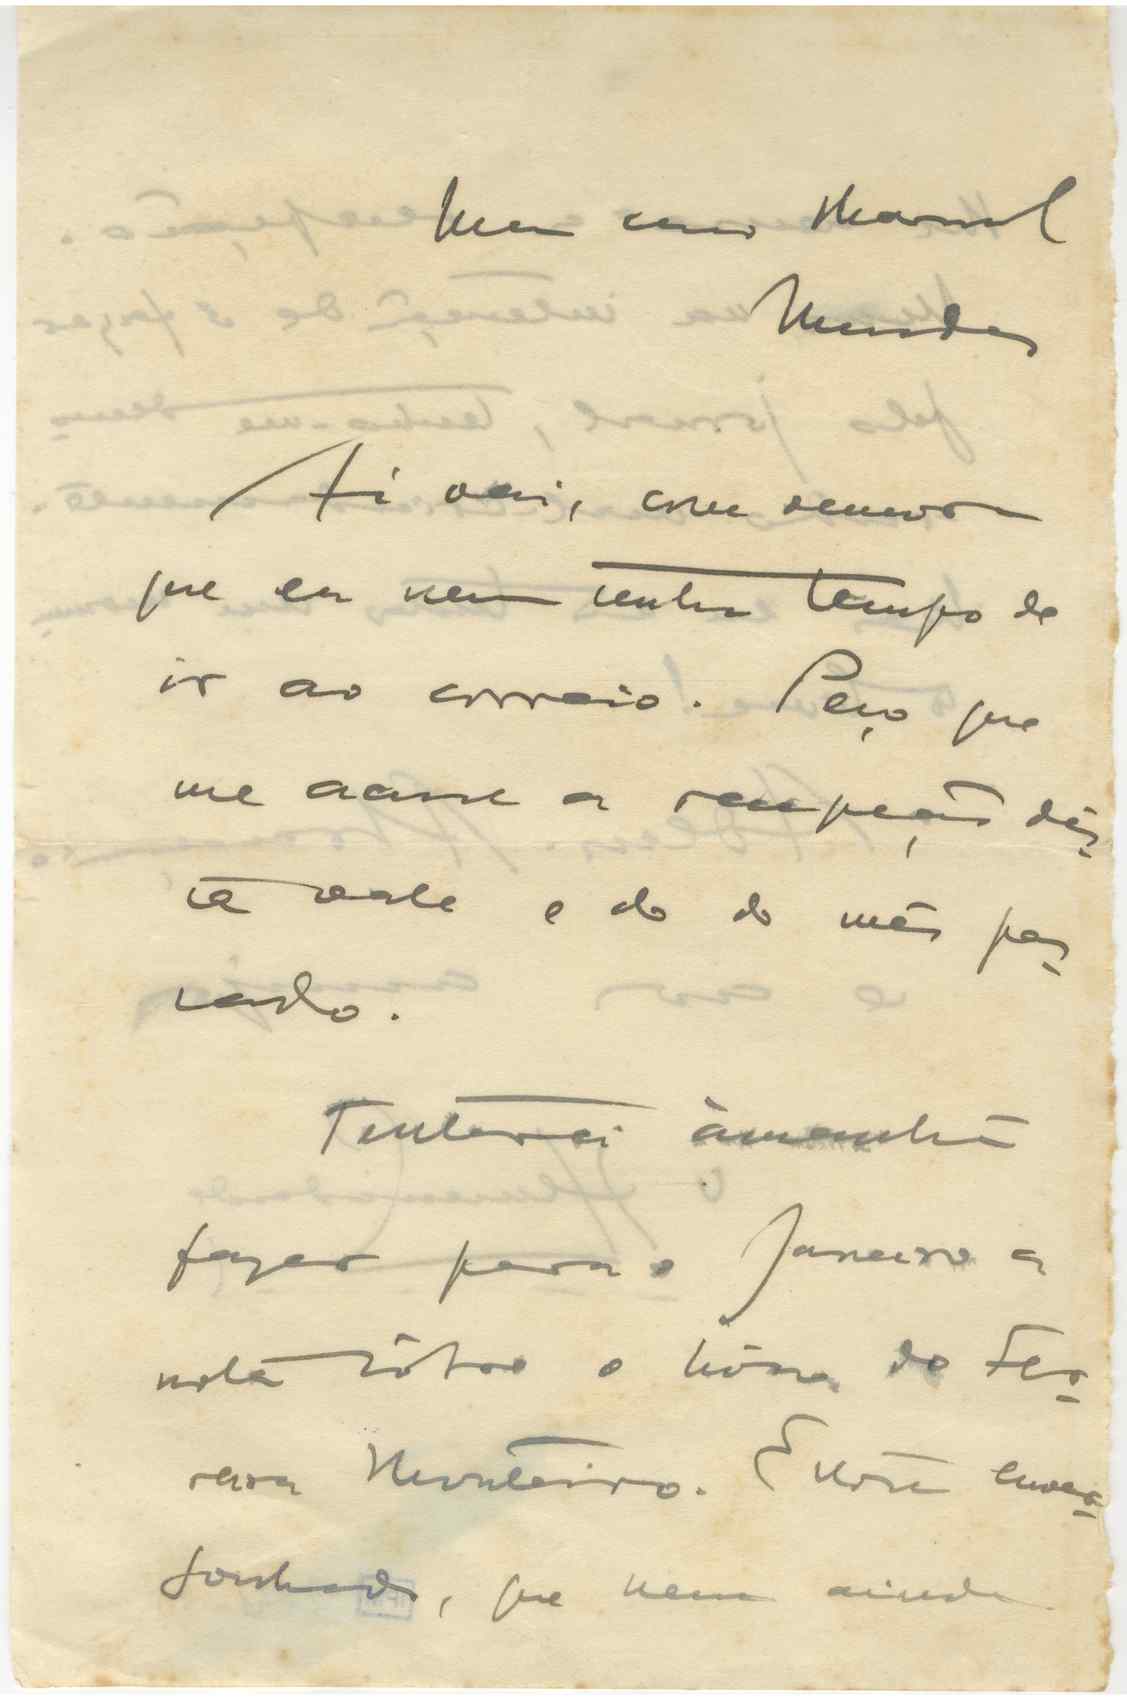 Meu caro Manuel
Mendes
Aí vai, com demora
que eu nem tenho tempo de
ir ao correio. Peço que
me acuse a recepção dês-
te vale e do do mês pas-
sado.
Tentarei àmanhã
fazer para o Janeiro a
nota sôbre o livro do Fer-
reira Monteiro. Estou enver-
gonhado, que nem ainda